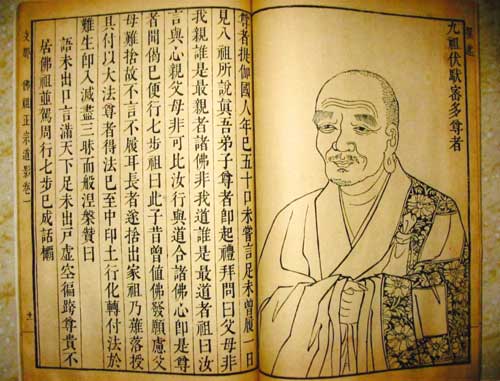 九祖伏馱審多尊者
尊者提伽國人年已五十口未嘗言足未曾履一日
見八祖所說真吾弟子尊者即起禮拜問曰父母非
我親誰是最親者諸佛非我道誰是最道者祖曰汝
言與心親父母非可比汝行與道合諸佛心即是尊
者聞偈已便行七步祖曰此子昔曾值佛發願慮父
母難捨故不言不履耳長者遂捨出家祖乃薙落授
具付以大法尊者得法已至中印土行化轉付法於
難生即入滅盡三昧而般涅槃贊曰
語未出口言滿天下足未出戶虛空徧跨尊貴不
居佛祖並駕周行七步已成話欛
佛祖正宗道影卷一